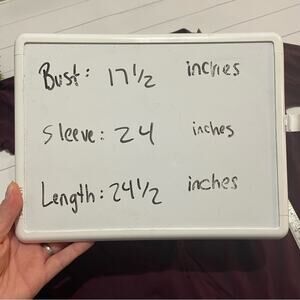 Bust: 17 1/2 inches
Sleeve: 24 inches
Length: 24 1/2 inches